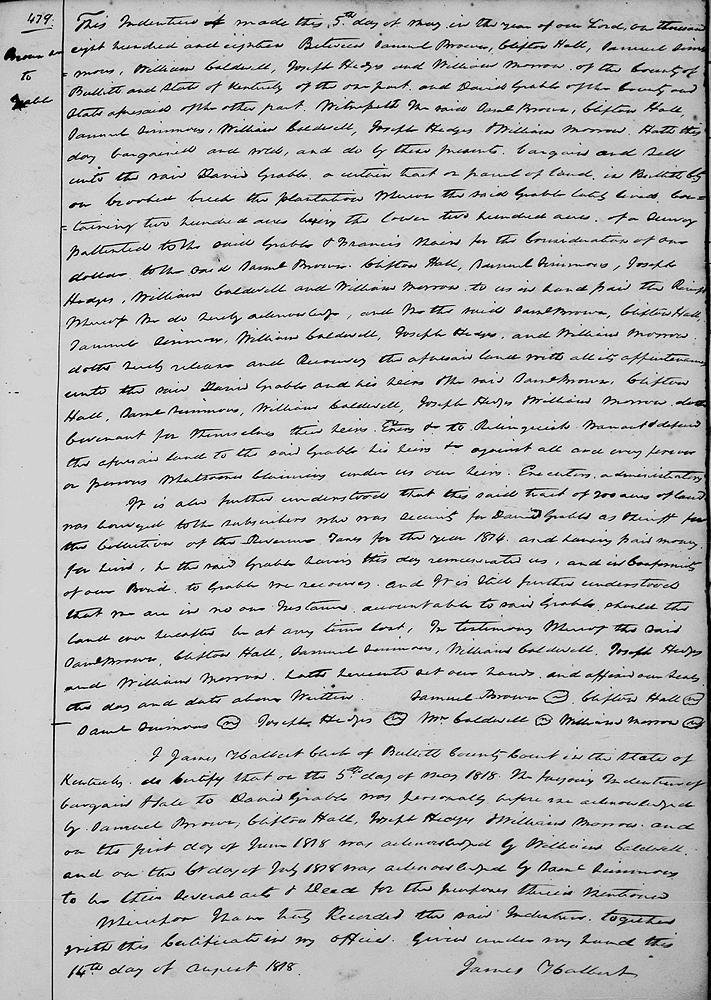 479.
Brown &c
to
Grable
This Indenture made this 5th day of May in the year of our Lord, one thousand
eight hundred and eighteen Between Samuel Brown, Clifton Hall, Samuel Sim=
=mons, William Caldwell, Joseph Hedges and William Morrow. of the County of
Bullitt and State of Kentucky of the one part. and David Grable of the County and
State aforesaid of the other part. Witnesseth the said Saml Brown, Clifton Hall,
Samuel Simmons, William Caldwell, Joseph Hedges & William Morrow. Hath this
day bargained and sold, and do by these presents. bargain and Sell
unto the said David Grable. a certain tract or parcel of land. in Bullitt Cty
on Crooked Creek the plantation Whereon the said Grable lately lived. Con=
=taining two hundred acres being the lower two hundred acres. of a Survey
pattented to the said Grable & Francis for the Consideration of one
dollar to the said Saml Brown. Clifton Hall, Samuel Simmons, Joseph
Hedges, William Caldwell and William Morrow. to us in hand paid the Receipt
Whereof We do hereby acknowledge, and We the said Saml Brown, Clifton Hall
Samuel Simmons, William Caldwell, Joseph Hedges, and William Morrow.
doth hereby release and Reconvey the aforesaid land with all its appertenances
unto the said David Grable and his heirs & the said Saml Brown, Clifton
Hall, Saml Simmons, William Caldwell, Joseph Hedges & William Morrow. doth
Covenant for themselves their heirs. Exrs &c to Relinquish Warrant & defend
the aforesaid land to the said Grable his heirs &c against all and every person
or persons Whatsoever Claiming under us our heirs. Executors. administrators
It is also further understood that the said tract of 200 acres of land
was conveyed to the subscribers who was Security for David Grable as Sheriff for
the Collection of the Revenue Taxes for the year 1814. and having paid money.
for him, he the said Grable having this day remunerated us, and in Conformity
of our Bond. to Grable We reconvey. and It is Still further understood
that we are in no one Instance accountable to said Grable, should the
land ever hereafter be at any time lost, In testimony Whereof the said
Saml Brown, Clifton Hall, Samuel Simmons, William Caldwell, Joseph Hedges
and William Morrow. hath hereunto set our hands. and affixed our seals
the day and date above Written. Samuel Brown Clifton Hall
Saml Simmons Joseph Hedges Wm Caldwell William Morrow
I James Halbert Clerk of Bullitt County Court in the State of
Kentucky. do Certify that on the 5th day of May 1818. The foregoing Indenture of
bargain & Sale to David Grable was personally before me acknowledged
by Samuel Brown, Clifton Hall, Joseph Hedges & William Morrow. and
on the first day of June 1818 was acknowledged by William Caldwell.
and on the 6t day of July 1818 was acknowledged by Saml Simmons
to be their Several acts & Deed for the purposes therein Mentioned
Whereupon I have truly Recorded the said Indenture. together
with this Certificate in my office. Given under my hand this
14th day of August 1818. James Halbert